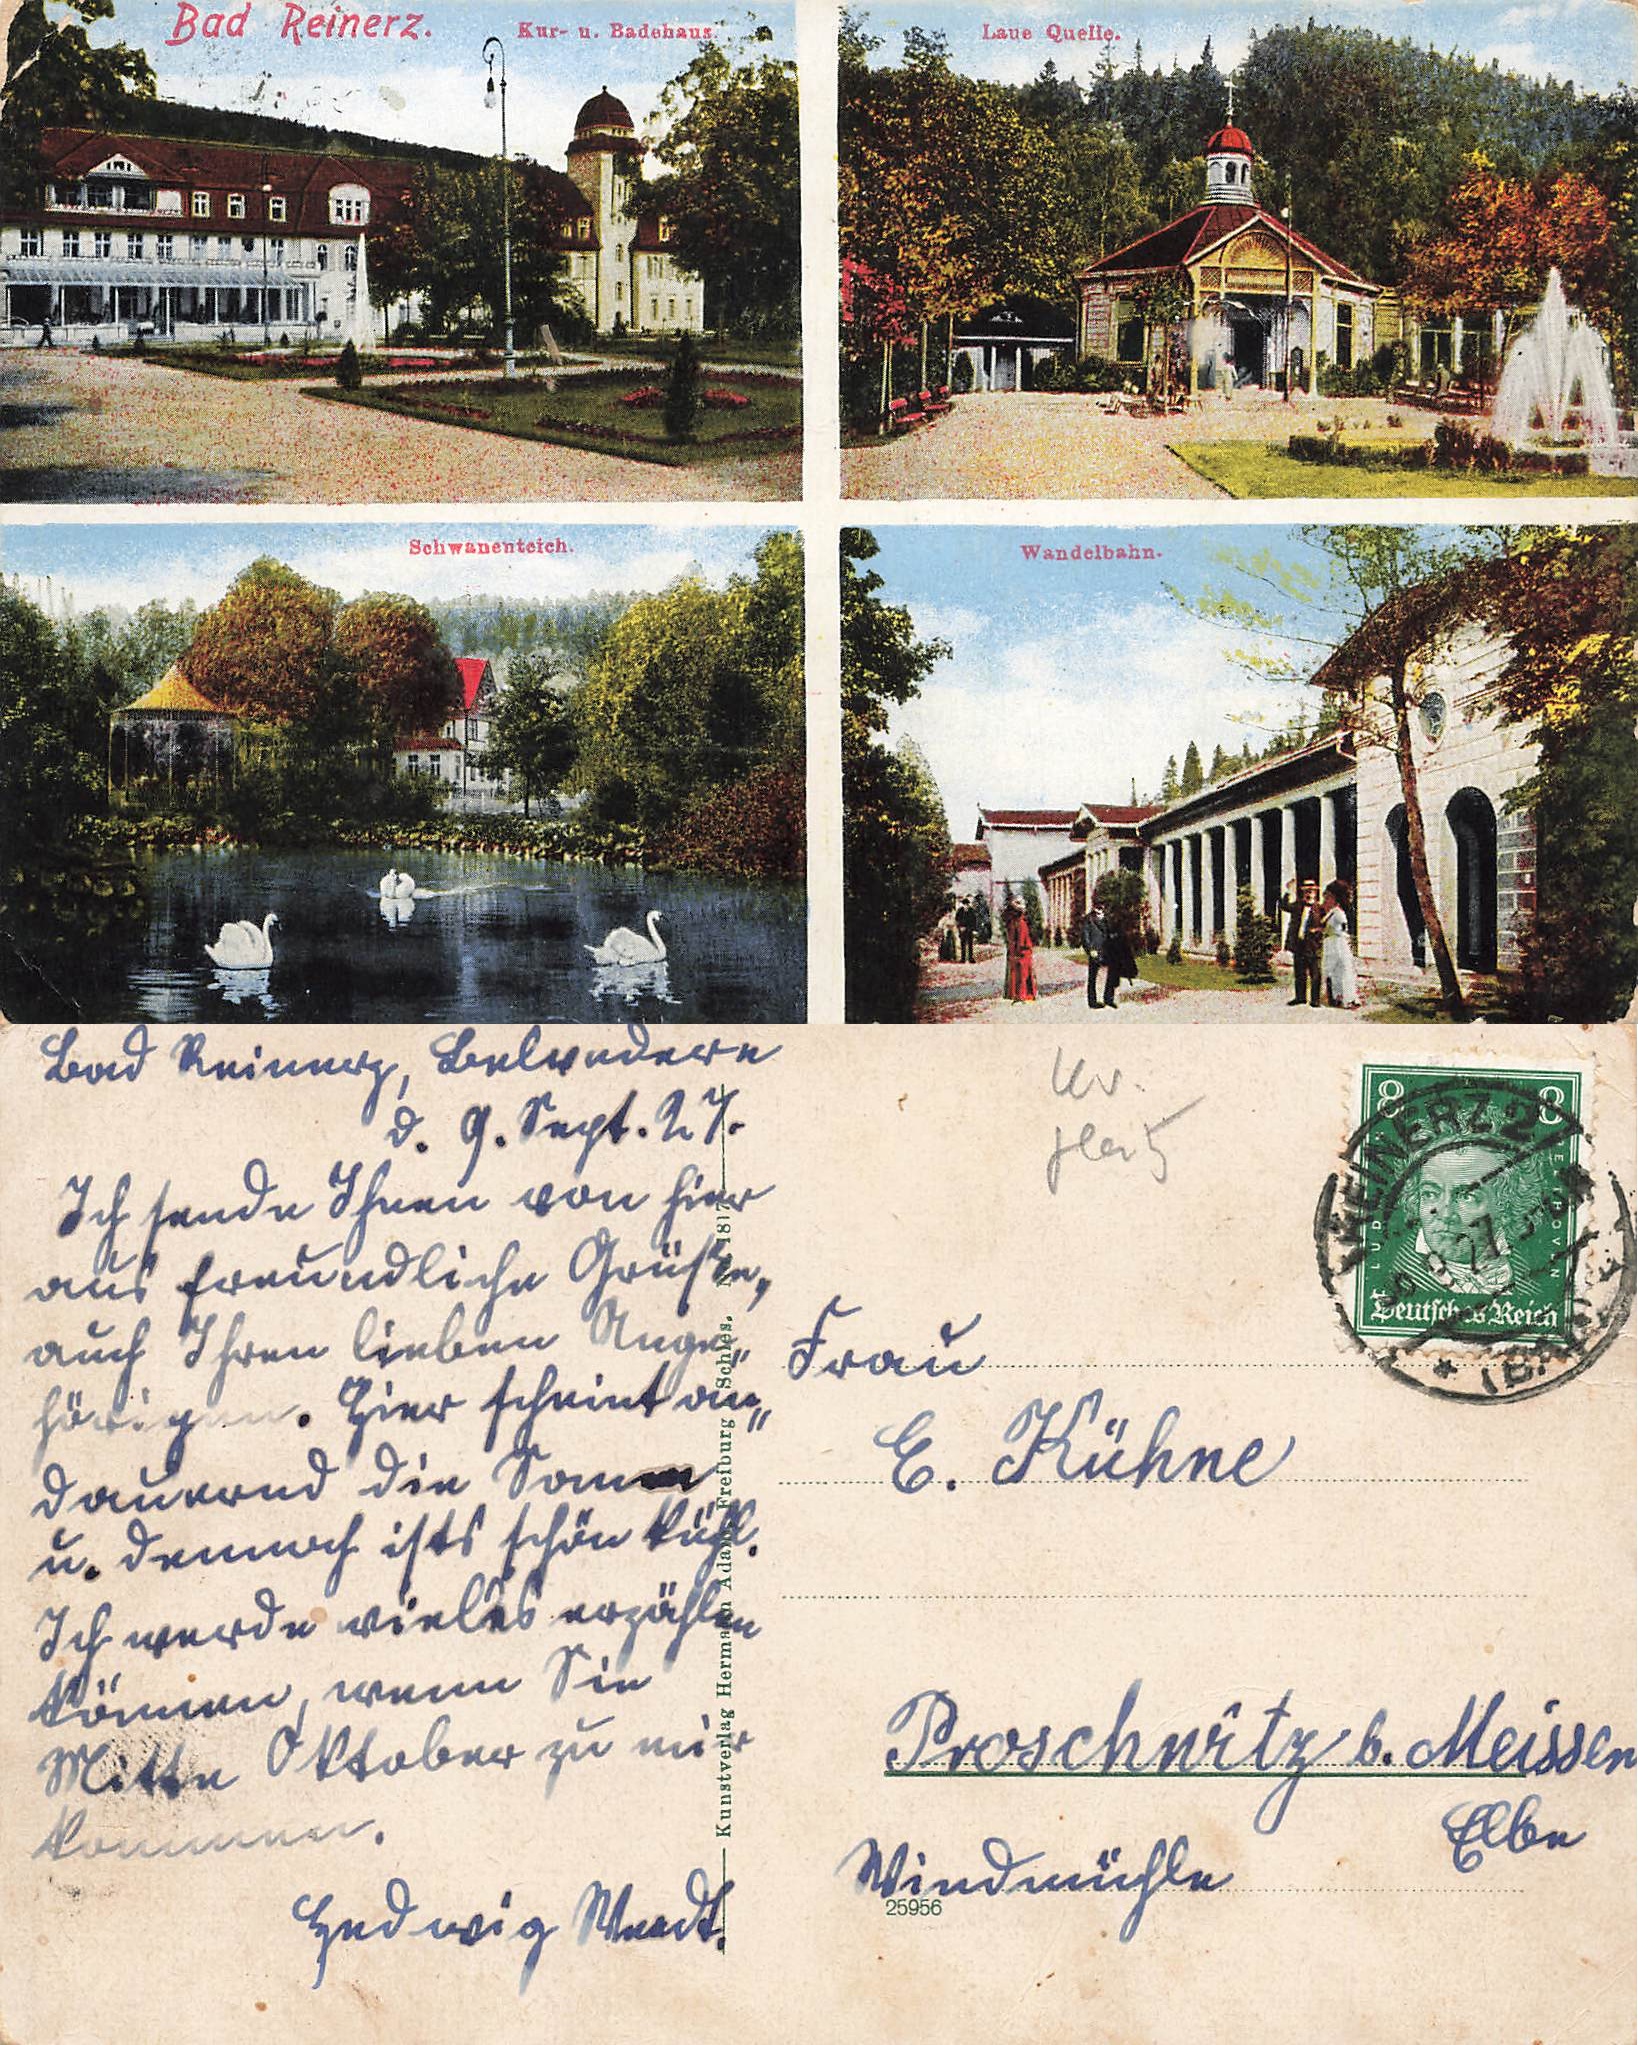 Bad Reinerz.
Kur- u. Badehaus.
Laue Quelle.
Schwanenteich.
Wandelbahn.
Bad Reinerz, Belvedere
d. 9. Sept. 27.
Ich sende Ihnen von hier
aus freundliche Grüße,
auch Ihren lieben Ange„
hörigen. Hier scheint an„
dauernd die Sonne
u. dennoch ists schön kühl.
Ich werde vieles erzählen
können, wenn Sie
Mitte Oktober zu mir
kommen.
Hedwig Wendt.
Kunstverlag Hermann Adam, Freiburg Schles.
8 8
LUD BEETHOVEN
Deutsches Reich
REINERZ 2
Frau
E. Kühne
Proschwitz b. Meissen
Elbe
Windmühle
25956